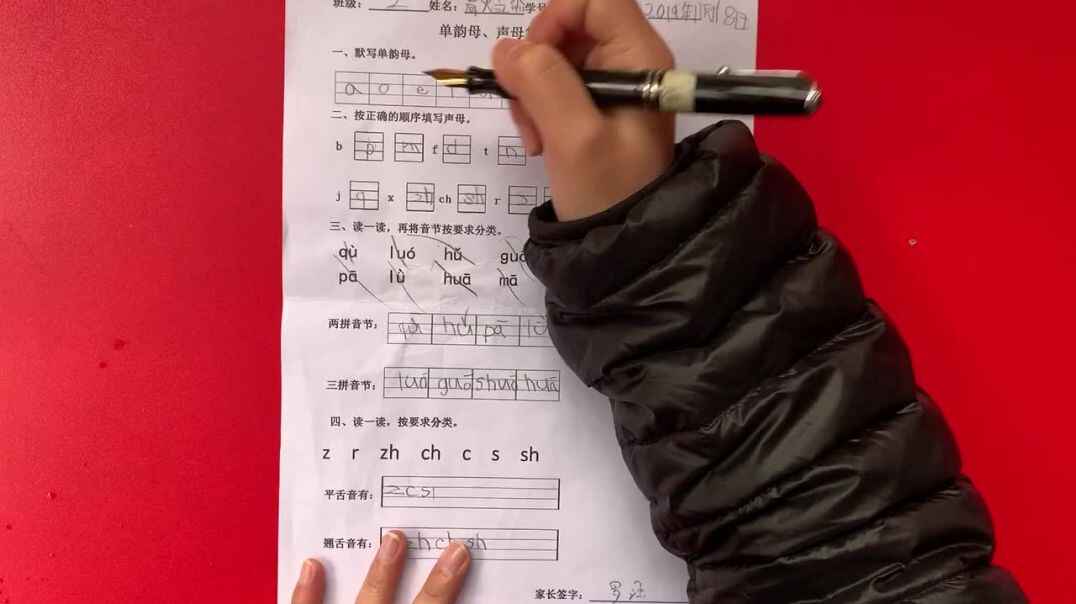 班级： 2 姓名： 学号
单韵母、声母
一、默写单韵母。
a o e i
二、按正确的顺序填写声母。
b p m f d t n
j q x zh ch sh r
三、读一读，再将音节按要求分类。
qù luó hǔ
pā lǜ huā mā
两拼音节： qù hǔ pā lǜ
三拼音节： luó guō shuō huā
四、读一读，按要求分类。
z r zh ch c s sh
平舌音有： z c s
翘舌音有： zh ch sh
家长签字：